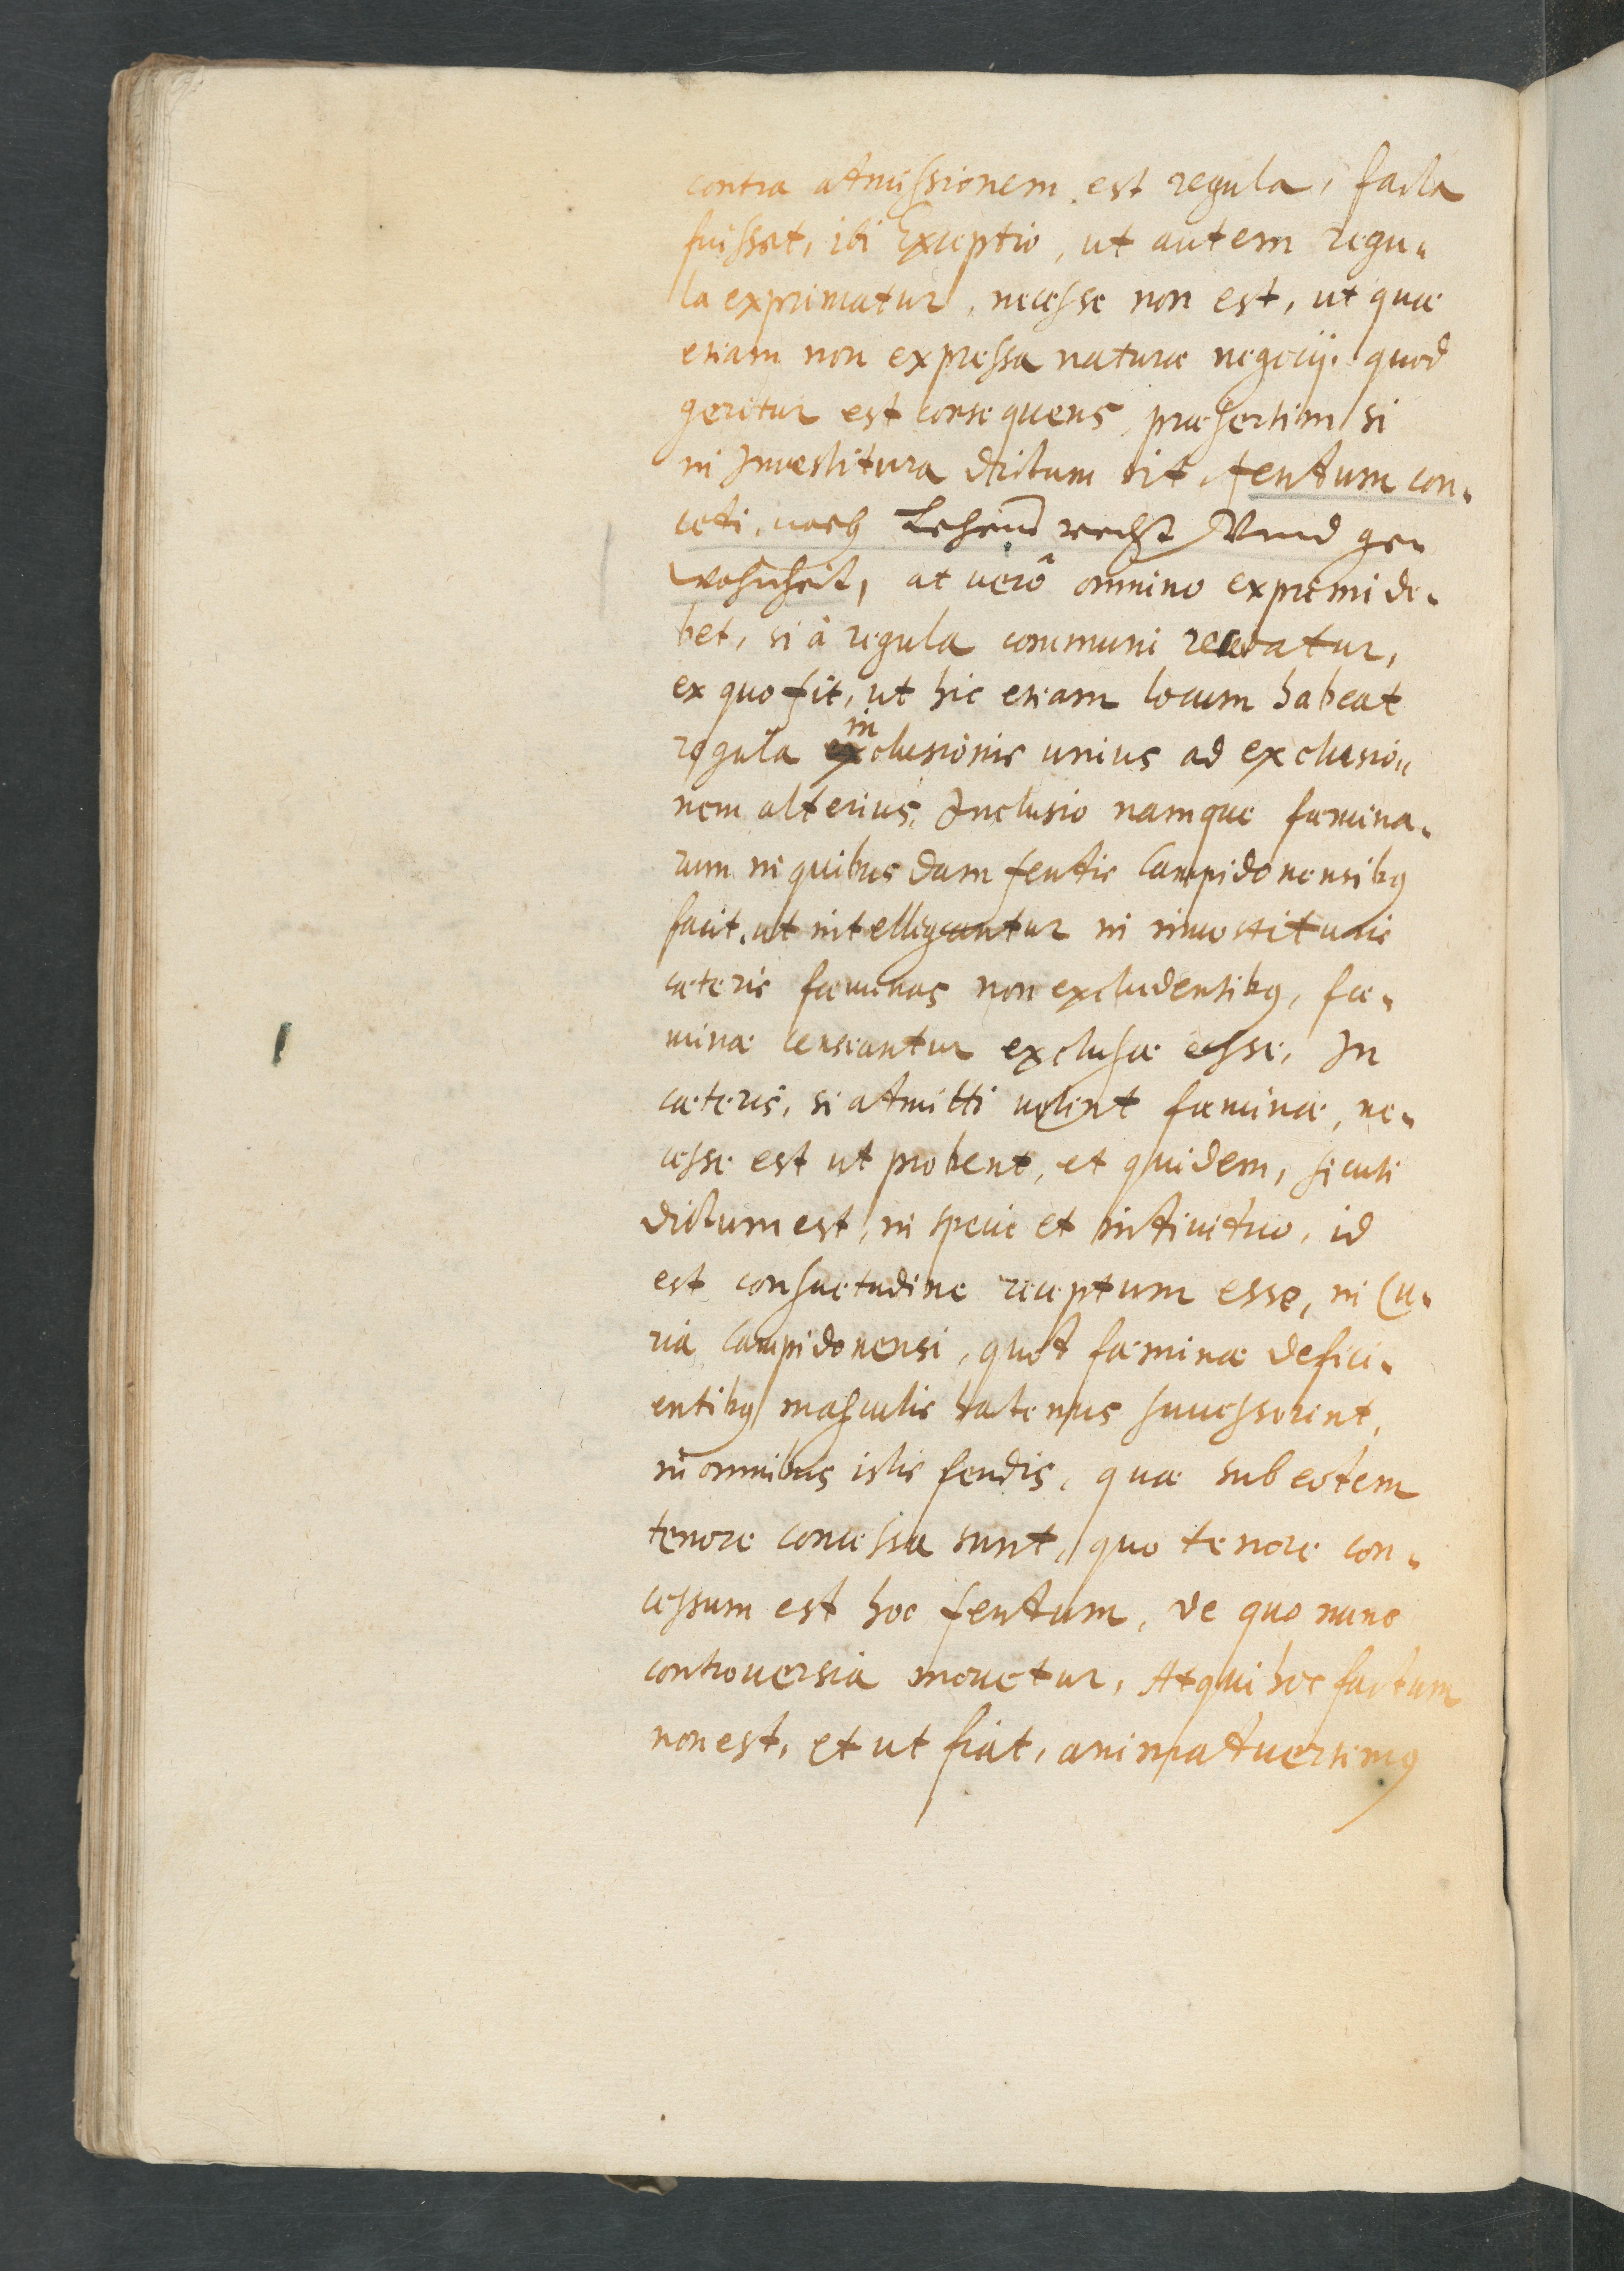 contra admissionem est regula, facta
fuisset, ibi Exceptio, ut autem regu-
la exprimatur, necesse non est, ut quæ
etiam non expressa naturæ negocij quod
geritur est consequens, præsertim si
in Investitura dictum sit, feudum con-
cedi, nach Lehens recht Vnnd ge-
wohnheit, at verò omnino exprimi de-
bet, si à regula communi recedatur,
ex quo fit, ut hic etiam locum habeat
regula inclusionis unius ad exclusio-
nem alterius, Inclusio namque fœmina-
rum in quibusdam feudis Campidonensibus
facit, ut intelligantur in investituris
cæteris fœminas non excludentibus, fœ-
minæ censeantur exclusæ esse, In
cæteris, si admitti velint fœminæ, ne-
cesse est ut probent, et quidem, sicuti
dictum est, in specie et individuo, id
est consuetudine receptum esse, in Cu-
ria Campidonensi, quod fœminæ defici-
entibus masculis hactenus successerint,
in omnibus istis feudis, quæ sub eodem
tenore concessa sunt, quo tenore con-
cessum est hoc feudum, de quo nunc
controversia movetur, Atqui hoc factum
non est, et ut fiat, animadversimus